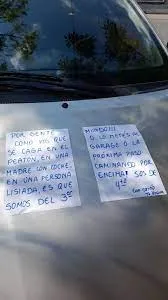 POR GENTE
COMO VOS QUE
SE CAGA EN EL
PEATON, EN UNA
MADRE CON COCHE,
EN UNA PERSONA
LISIADA, ES QUE
SOMOS DEL 3º
O LO METES AL
GARAGE O LA
PRÓXIMA PASO
CAMINANDO POR
ENCIMA! SOS DE
4ta